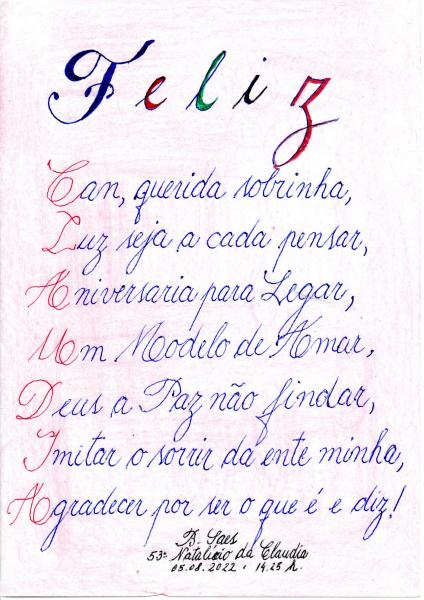 Feliz
Can, querida sobrinha,
Luz seja a cada pensar,
Aniversaria para Legar,
Um Modelo de Amar,
Deus a Paz não findar,
Imitar o sorrir da ente minha,
Agradecer por ser o que é e diz!
B. Saes
53º Natalício da Claudia
05.08.2022, 14.25 h.